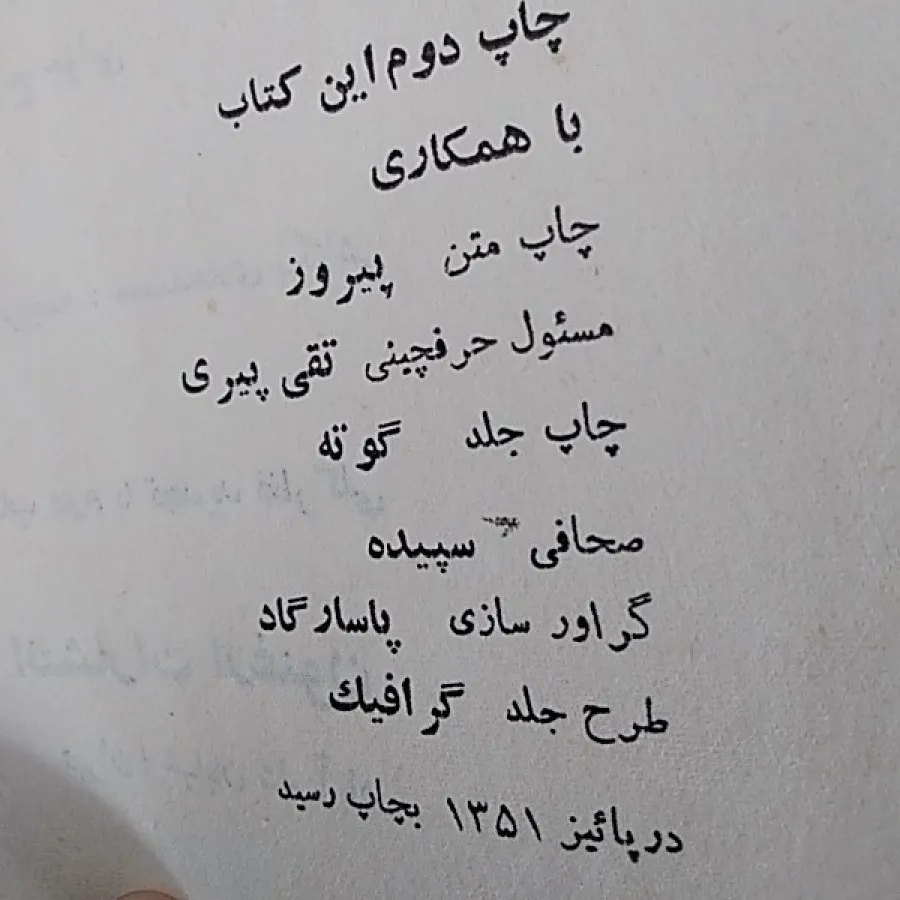 چاپ دوم این کتاب
با همکاری
چاپ متن پیروز
مسئول حرفچینی تقی پیری
چاپ جلد گوته
صحافی سپیده
گراور سازی پاسارگاد
طرح جلد گرافیك
در پائیز ۱۳۵۱ بچاپ رسید